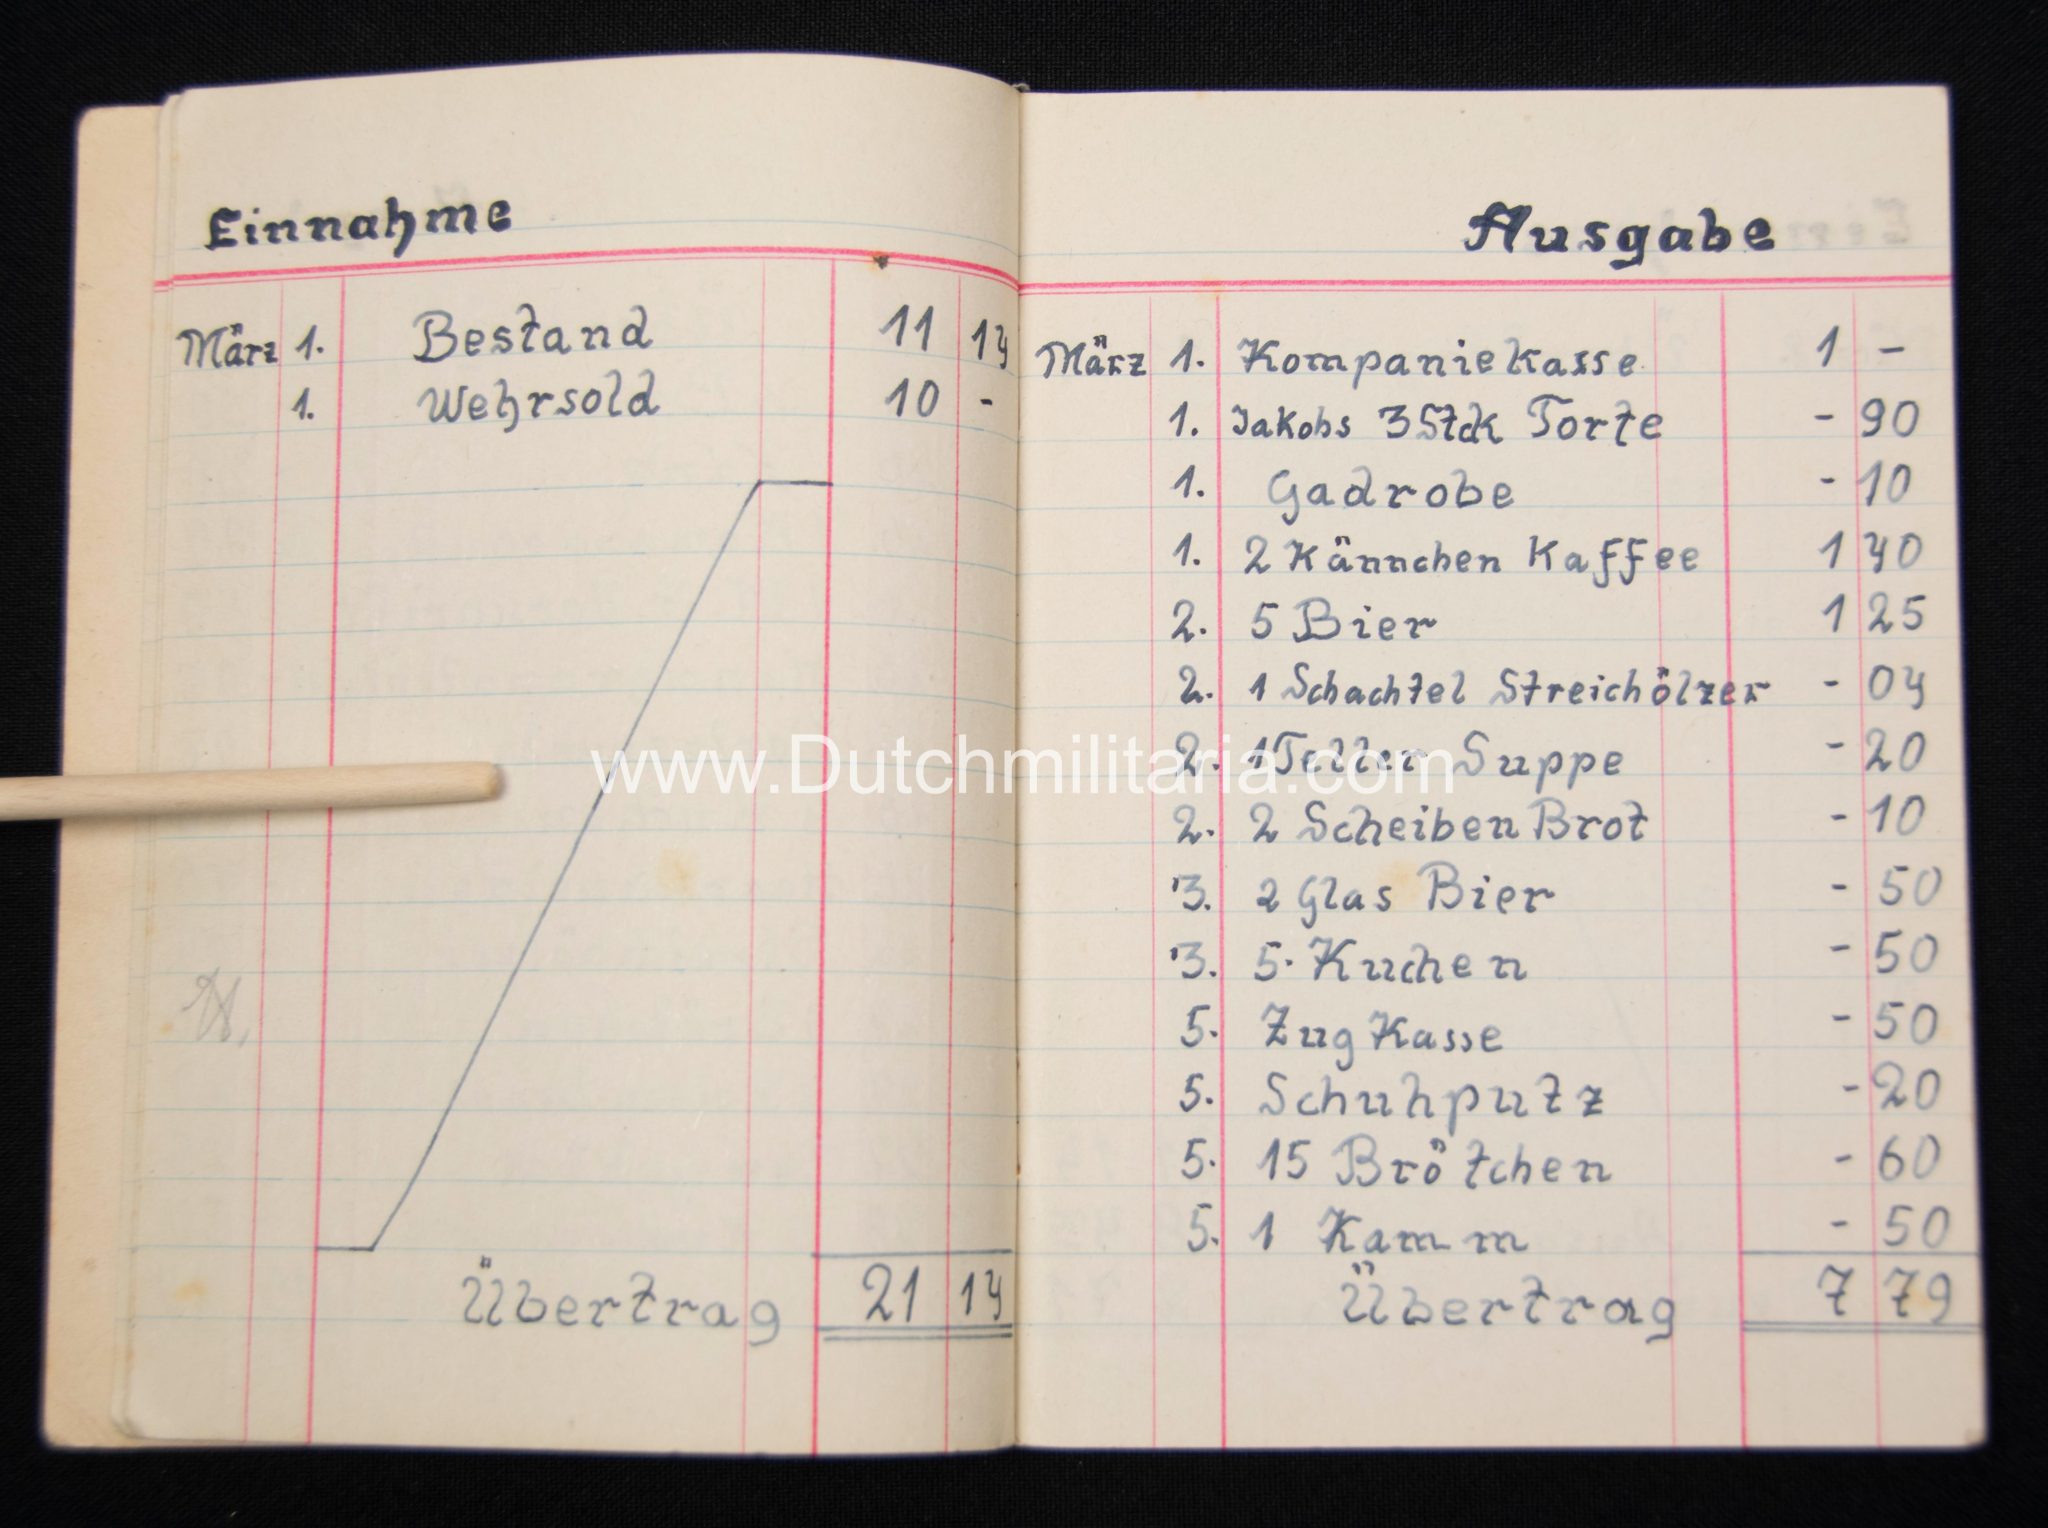 Einnahme
März 1. Bestand 11 14
1. Wehrsold 10 -
Übertrag 21 14
Ausgabe
März 1. Kompaniekasse 1 -
1. Jakobs 3 Stck Torte - 90
1. Gadrobe - 10
1. 2 Kännchen Kaffee 1 40
2. 5 Bier 1 25
2. 1 Schachtel Streichölzer - 04
2. 1 Teller Suppe - 20
2. 2 Scheiben Brot - 10
3. 2 Glas Bier - 50
3. 5 Kuchen - 50
5. Zug Kasse - 50
5. Schuhputz - 20
5. 15 Brötchen - 60
5. 1 Kamm - 50
Übertrag 7 79
www.Dutchmilitaria.com